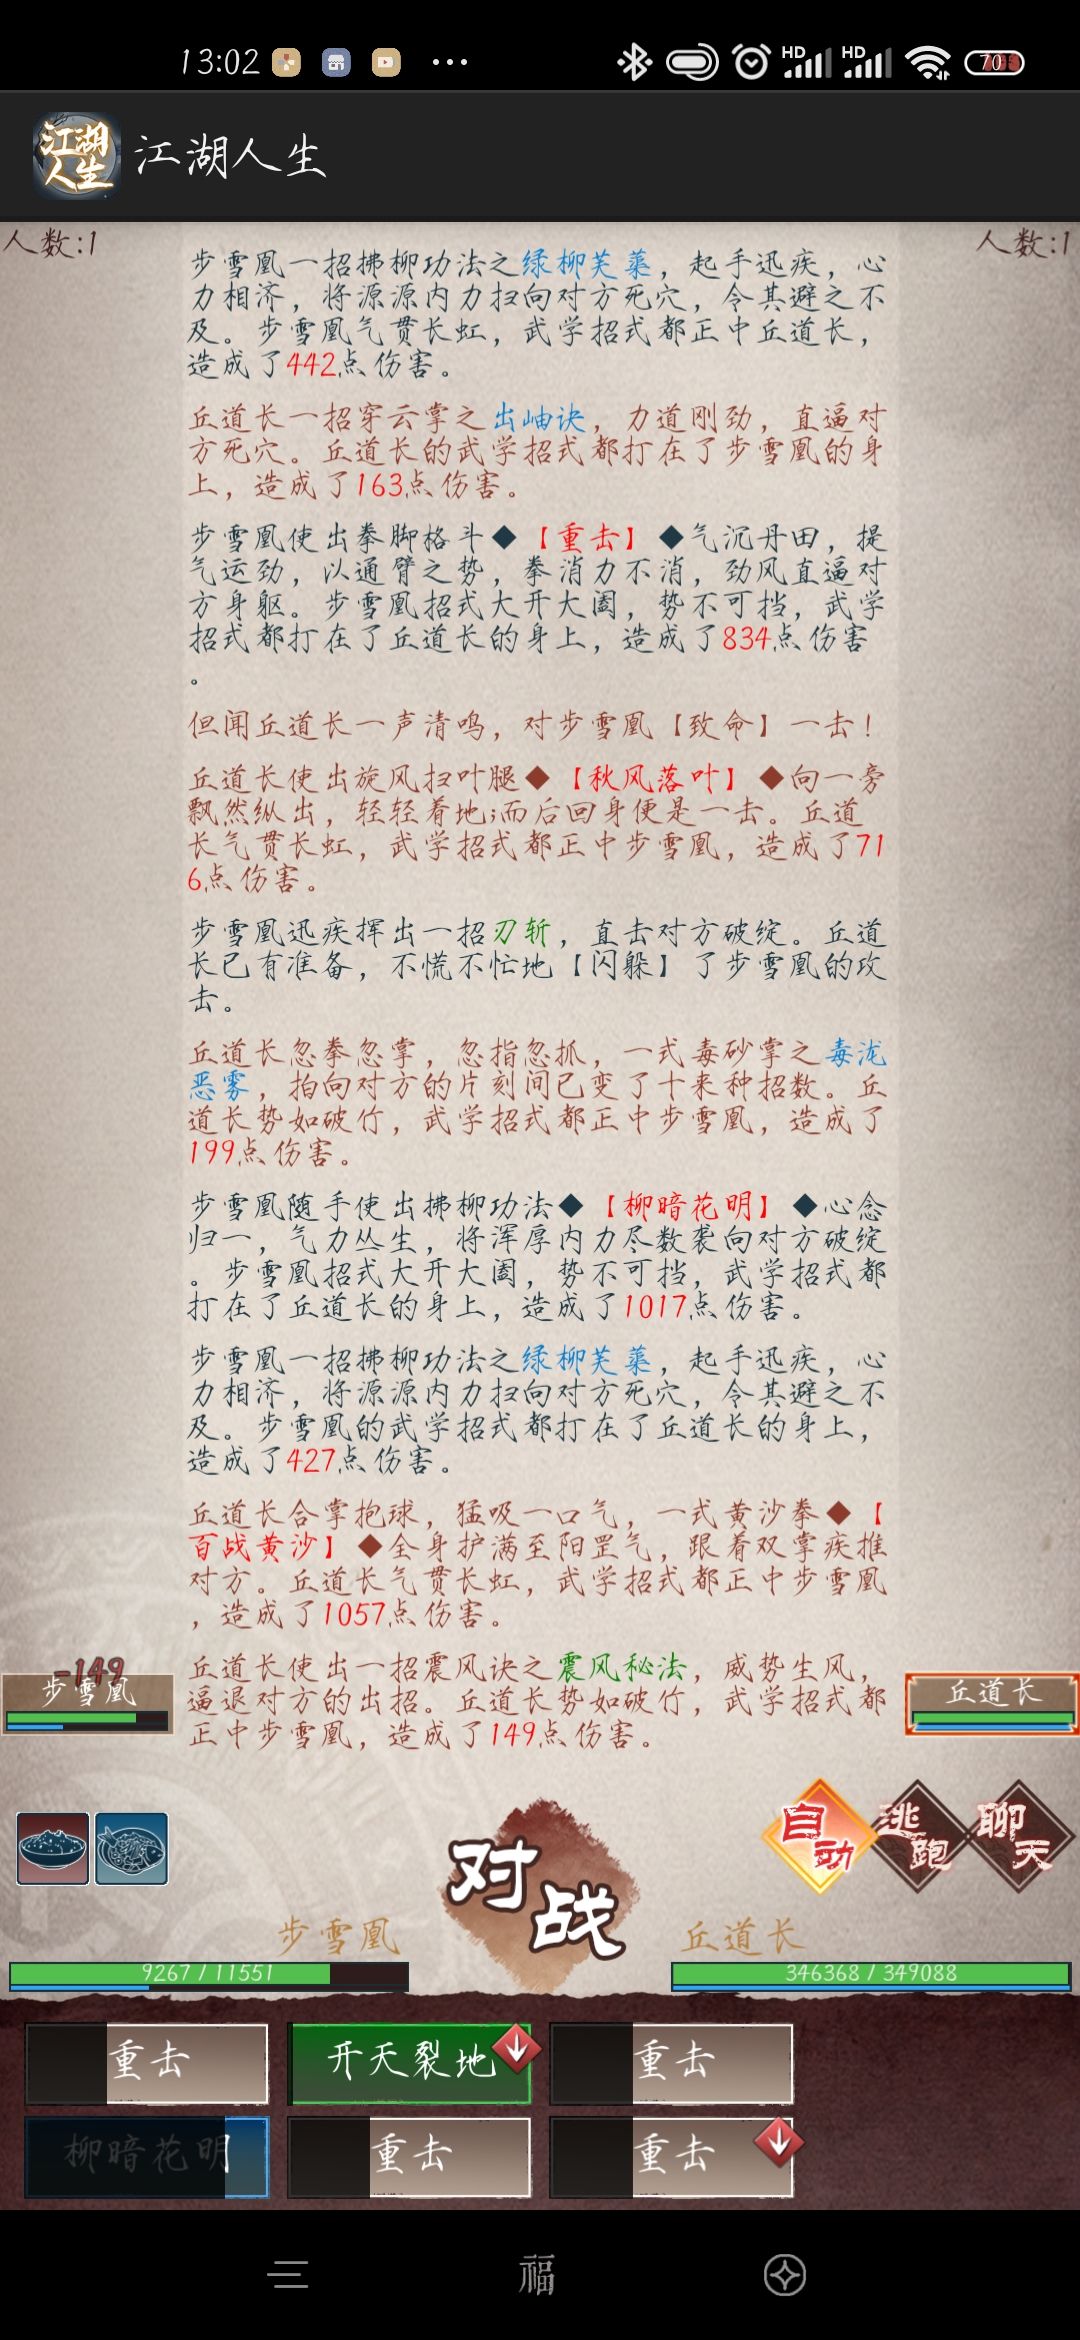 13:02
HD HD 70
江湖人生
江湖人生
人数:1
人数:1
步雪凰一招拂柳功法之绿柳芙蕖，起手迅疾，心
力相济，将源源内力扫向对方死穴，令其避之不
及。步雪凰气贯长虹，武学招式都正中丘道长，
造成了442点伤害。
丘道长一招穿云掌之出岫诀，力道刚劲，直逼对
方死穴。丘道长的武学招式都打在了步雪凰的身
上，造成了163点伤害。
步雪凰使出拳脚格斗◆【重击】◆气沉丹田，提
气运劲，以通臂之势，拳消力不消，劲风直逼对
方身躯。步雪凰招式大开大阖，势不可挡，武学
招式都打在了丘道长的身上，造成了834点伤害
。
但闻丘道长一声清鸣，对步雪凰【致命】一击！
丘道长使出旋风扫叶腿◆【秋风落叶】◆向一旁
飘然纵出，轻轻着地;而后回身便是一击。丘道
长气贯长虹，武学招式都正中步雪凰，造成了71
6点伤害。
步雪凰迅疾挥出一招刃斩，直击对方破绽。丘道
长已有准备，不慌不忙地【闪躲】了步雪凰的攻
击。
丘道长忽拳忽掌，忽指忽抓，一式毒砂掌之毒泷
恶雾，拍向对方的片刻间已变了十来种招数。丘
道长势如破竹，武学招式都正中步雪凰，造成了
199点伤害。
步雪凰随手使出拂柳功法◆【柳暗花明】◆心念
归一，气力丛生，将浑厚内力尽数袭向对方破绽
。步雪凰招式大开大阖，势不可挡，武学招式都
打在了丘道长的身上，造成了1017点伤害。
步雪凰一招拂柳功法之绿柳芙蕖，起手迅疾，心
力相济，将源源内力扫向对方死穴，令其避之不
及。步雪凰的武学招式都打在了丘道长的身上，
造成了427点伤害。
丘道长合掌抱球，猛吸一口气，一式黄沙拳◆【
百战黄沙】◆全身护满至阳罡气，跟着双掌疾推
对方。丘道长气贯长虹，武学招式都正中步雪凰
，造成了1057点伤害。
丘道长使出一招震风诀之震风秘法，威势生风，
逼退对方的出招。丘道长势如破竹，武学招式都
正中步雪凰，造成了149点伤害。
-149
步雪凰
丘道长
自动
逃跑
聊天
对战
步雪凰
丘道长
9267 / 11551
346368 / 349088
重击
开天裂地
重击
柳暗花明
重击
重击
福